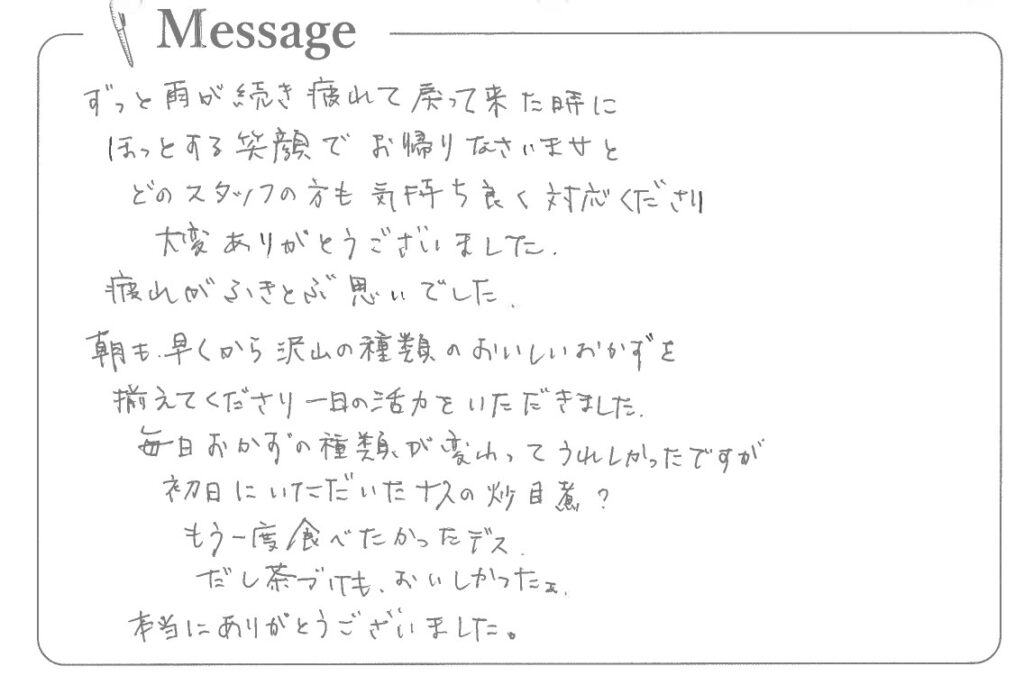 Message
ずっと雨が続き疲れて戻って来た時に
ほっとする笑顔でお帰りなさいませと
どのスタッフの方も気持ち良く対応くださり
大変ありがとうございました.
疲れがふきとぶ思いでした.
朝も.早くから沢山の種類のおいしいおかずを
揃えてくださり一日の活力をいただきました.
毎日おかずの種類が変わってうれしかったですが
初日にいただいたナスの炒目煮?
もう一度食べたかったデス.
だし茶づけも.おいしかったぇ.
本当にありがとうございました。